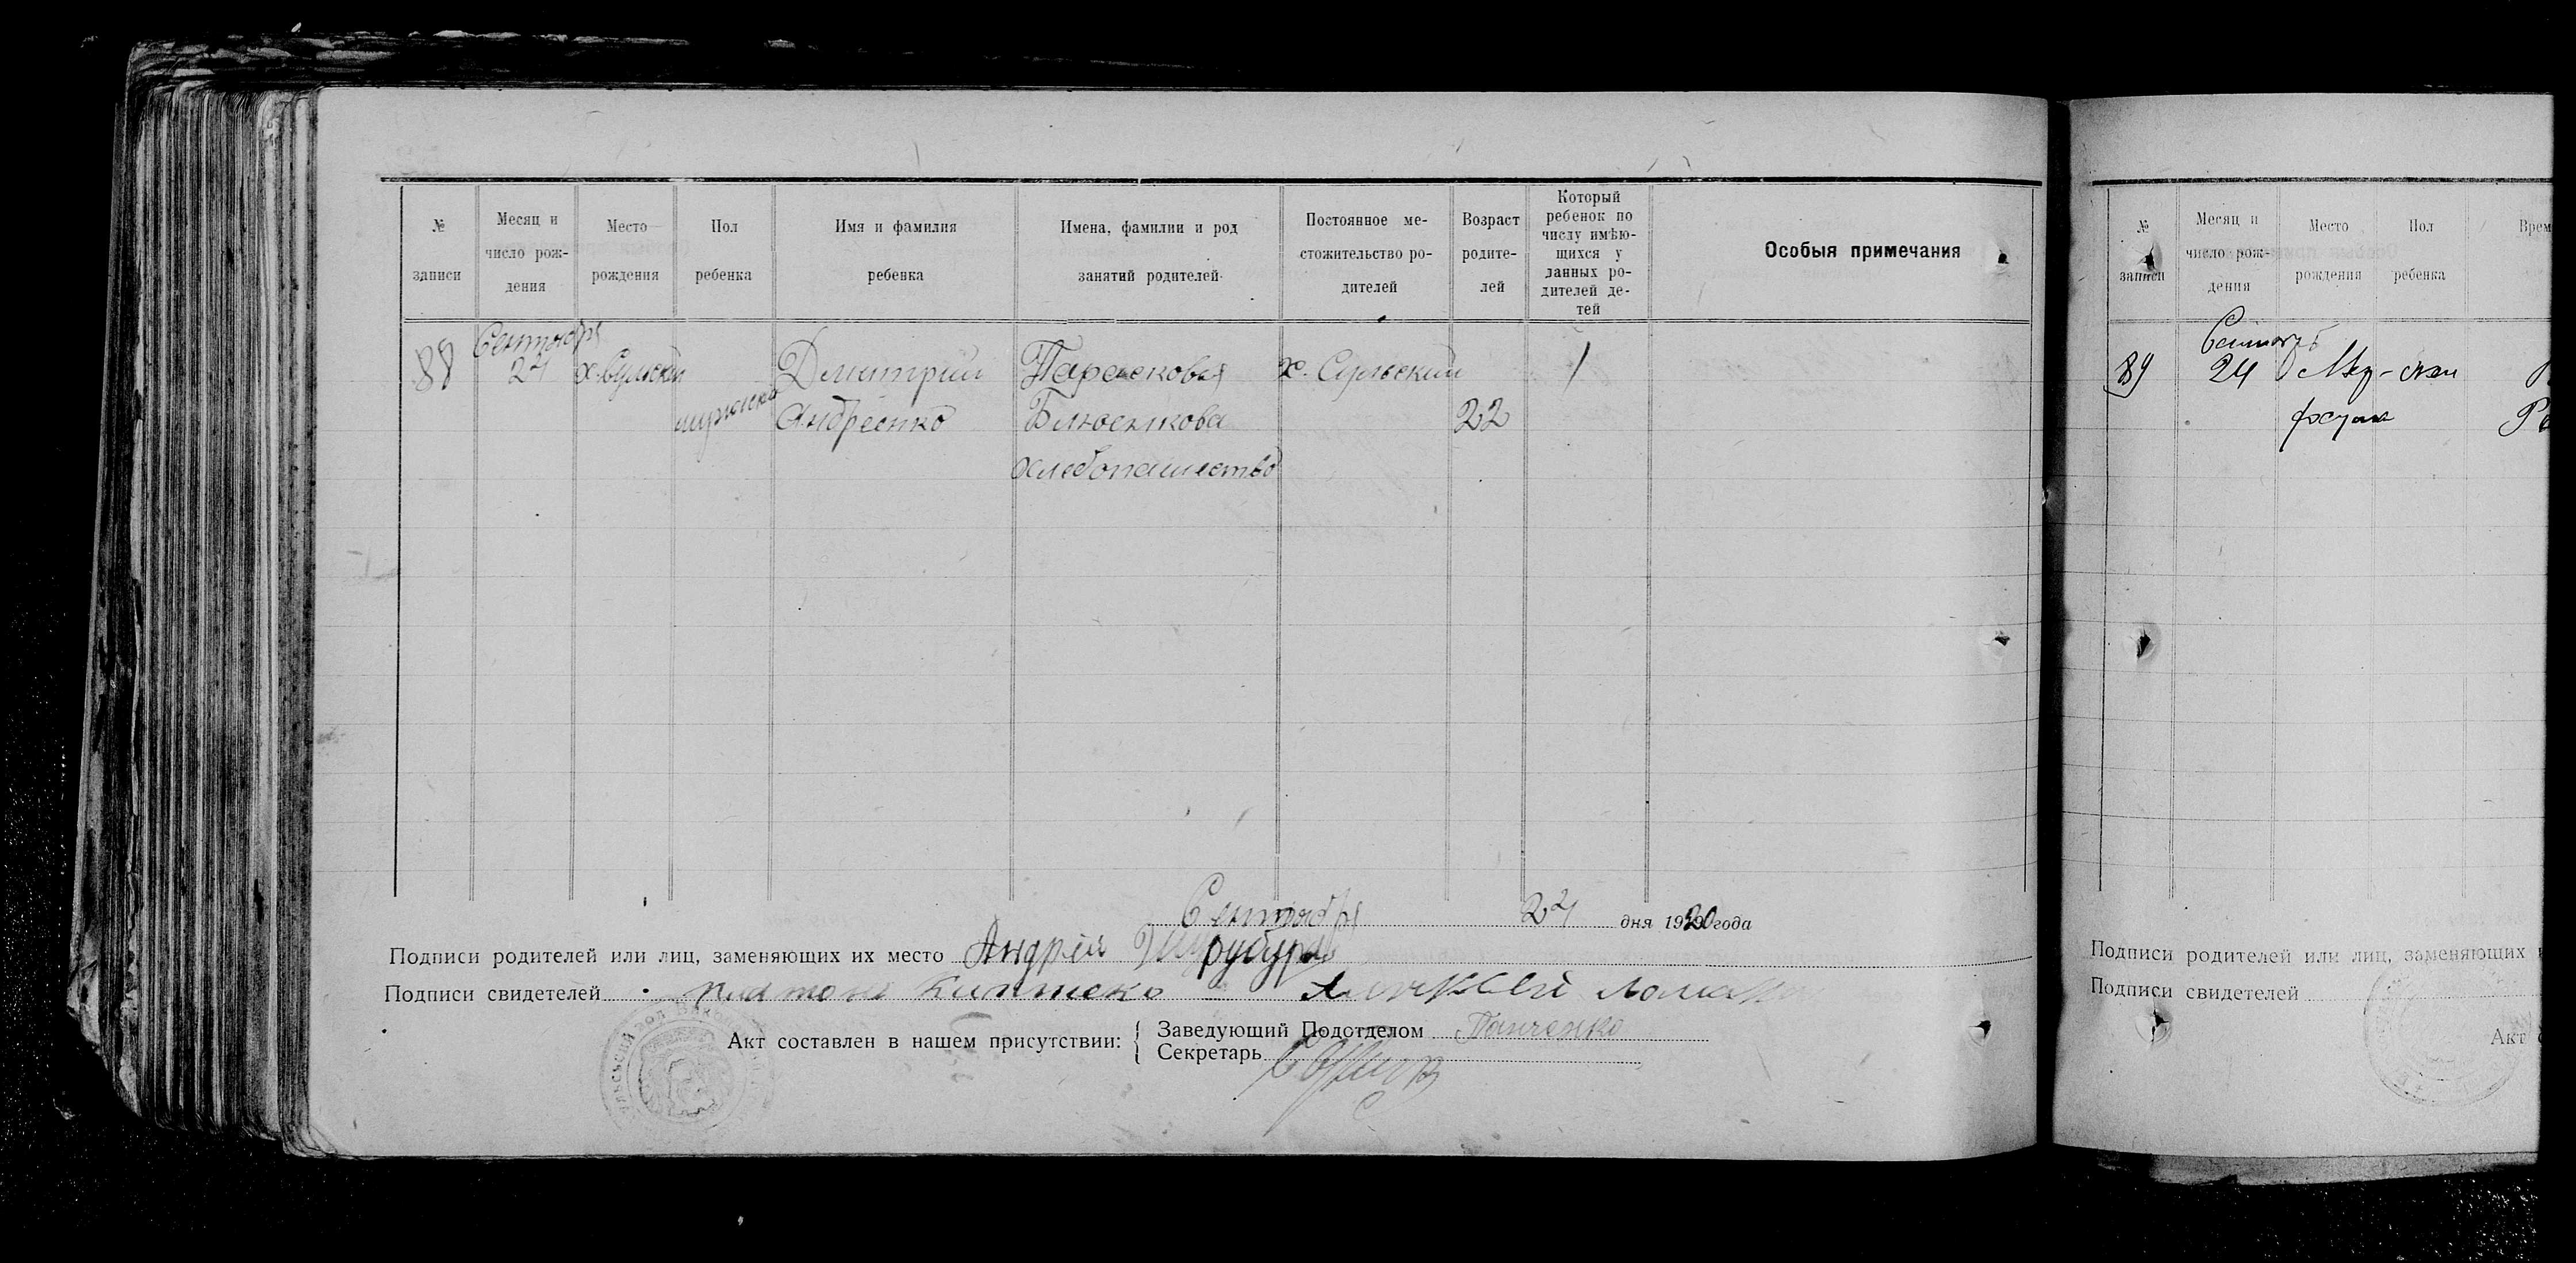 № записи
Месяц и число рож-дения
Место рождения
Пол ребенка
Имя и фамилия ребенка
Имена, фамилии и род занятий родителей
Постоянное ме-стожительство ро-дителей
Возраст родите-лей
Который ребенок по числу имѣю-щихся у данных ро-дителей де-тей
Особыя примечания
88 Сентября 24 х. Сульский Дмитрий Парасковья х. Сульский 1
Андреенко 22
хлебопашество
Сентября 24 дня 1920 года
Подписи родителей или лиц, заменяющих их место Андрей
Подписи свидетелей Платон Алексей
Акт составлен в нашем присутствии: Заведующий Подотделом Панченко
Секретарь
№ записи
Месяц и число рож-дения
Место рождения
Пол ребенка
Врем
89 24
Подписи родителей или лиц, заменяющих
Подписи свидетелей
Акт